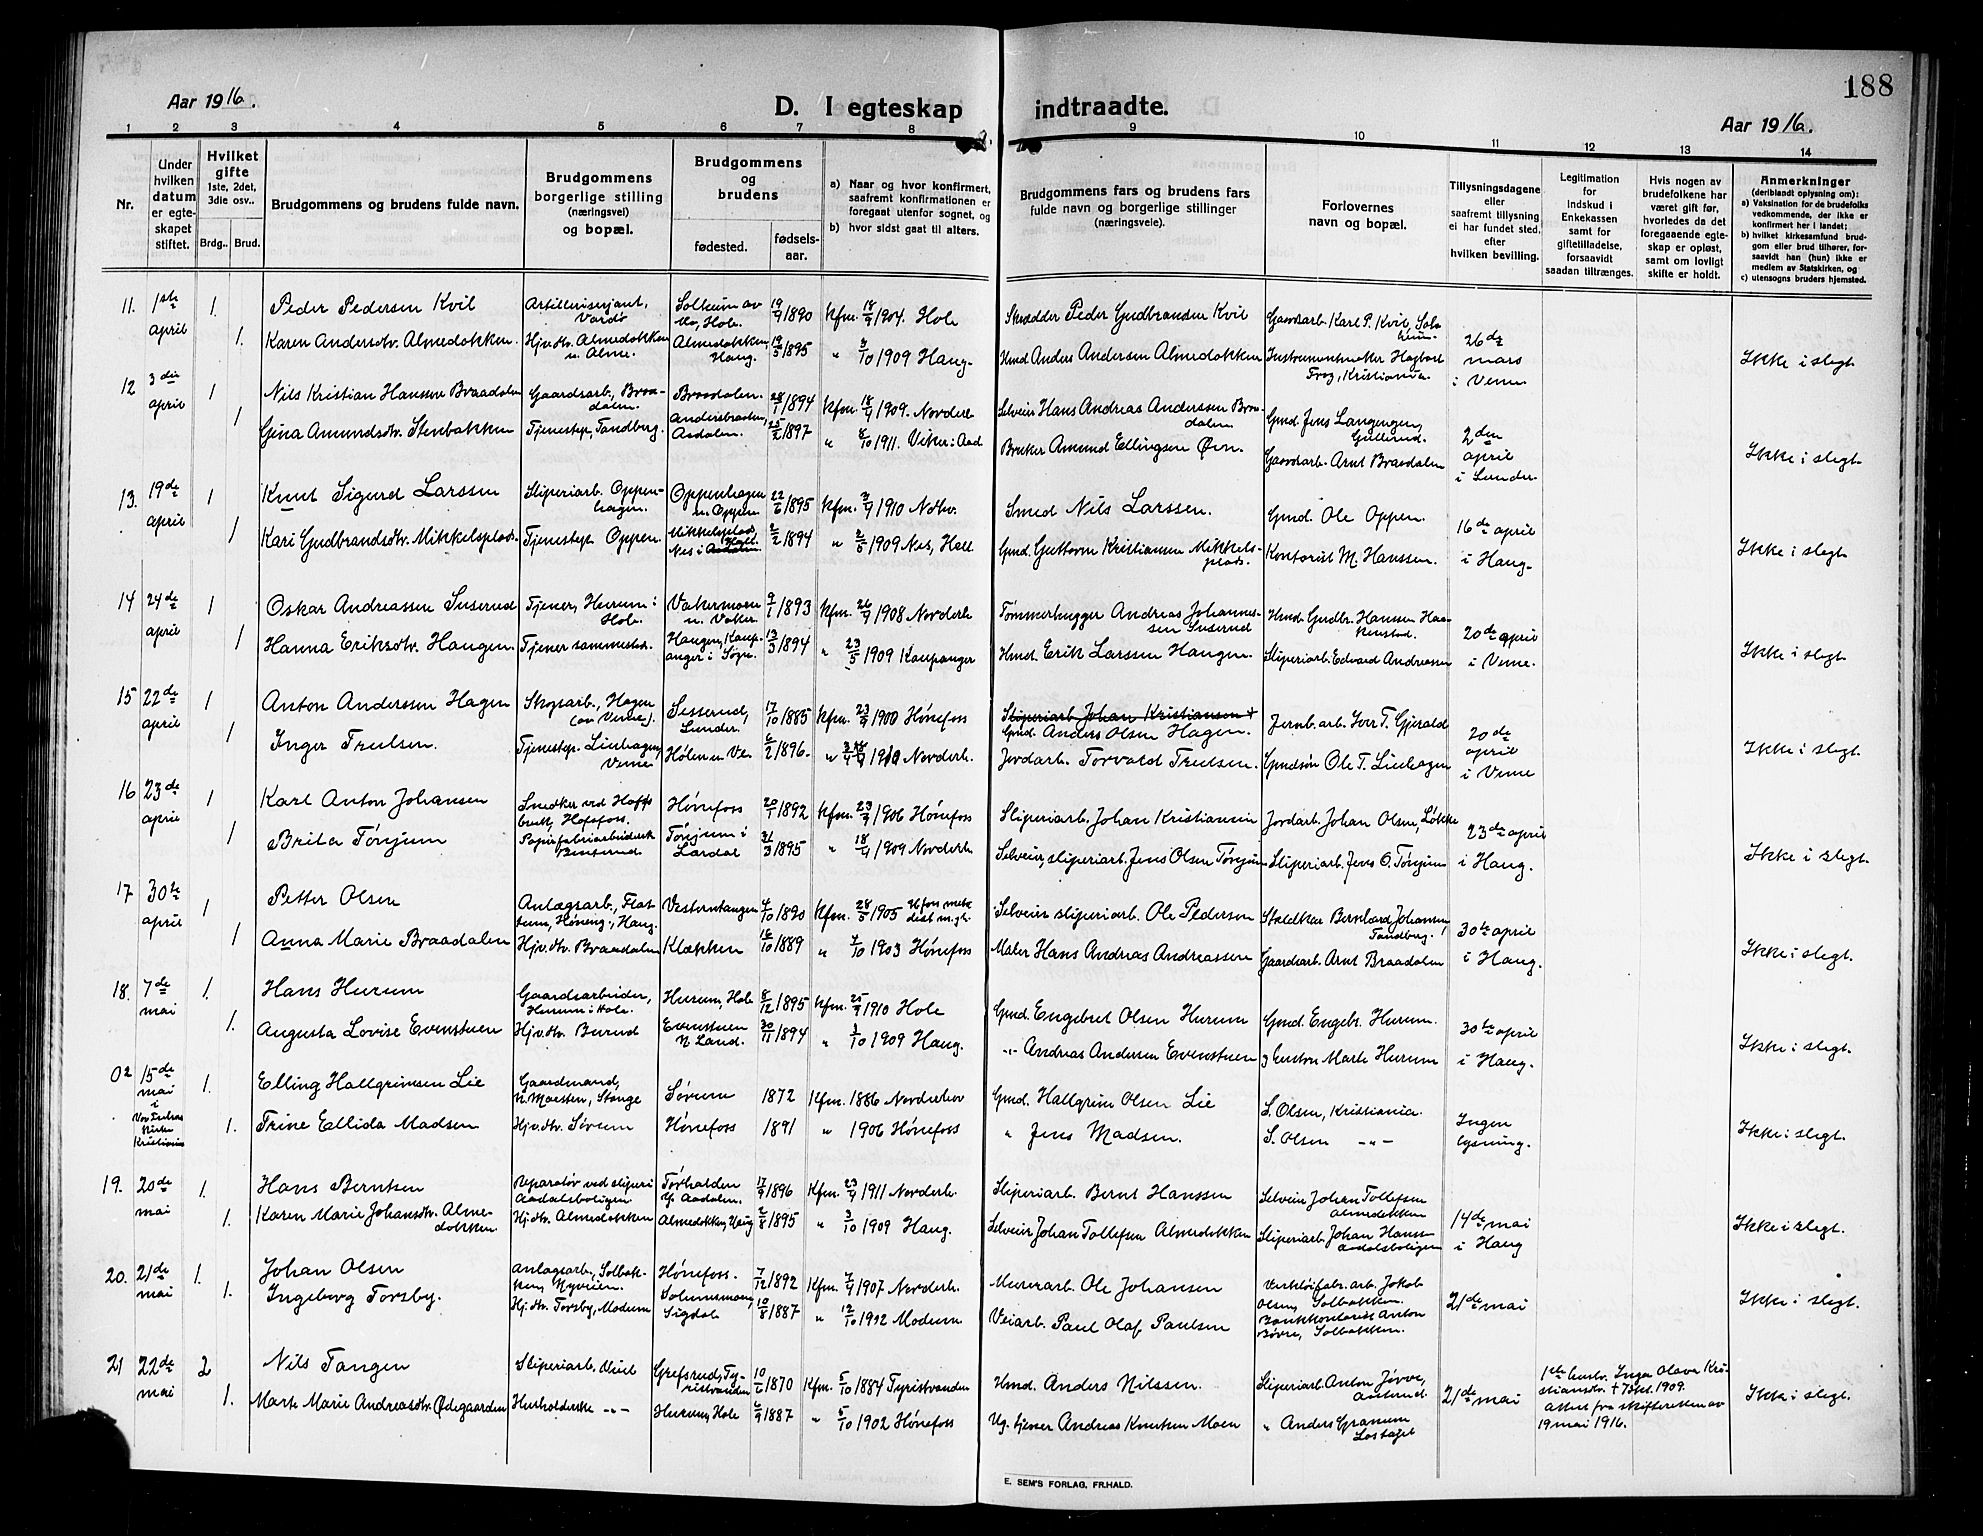 188
Aar 1916.
D. I egteskap indtraadte.
Aar 1916.
1 2 3 4 5 6 7 8 9 10 11 12 13 14
Nr.
Under hvilken datum er egteskapet stiftet.
Hvilket gifte 1ste, 2det, 3die osv..
Brdg.. Brud.
Brudgommens og brudens fulde navn.
Brudgommens borgerlige stilling (næringsvei) og bopæl.
Brudgommens og brudens
fødested. fødselsaar.
a) Naar og hvor konfirmert, saafremt konfirmationen er foregaat utenfor sognet, og
b) hvor sidst gaat til alters.
Brudgommens fars og brudens fars fulde navn og borgerlige stillinger (næringsveie).
Forlovernes navn og bopæl.
Tillysningsdagene eller saafremt tillysning ei har fundet sted, efter hvilken bevilling.
Legitimation for indskud i Enkekassen samt for giftetilladelse, forsaavidt saadan tiltrænges.
Hvis nogen av brudefolkene har været gift før, hvorledes da det foregaaende egteskap er opløst, samt om lovligt skifte er holdt.
Anmerkninger (deriblandt oplysning om):
a) Vaksination for de brudefolks vedkommende, der ikke er konfirmert her i landet;
b) hvilket kirkesamfund brudgom eller brud tilhører, forsaavidt han (hun) ikke er medlem av Statskirken, og
c) utensogns bruders hjemsted.
11. 1ste april 1. Peder Pedersen Kvil Artillerisersjant, Vardö Solheim av Hole. 19/9 1890 Kfm. 18/9 1904. Hole Skrædder Peder Gudbrandsen Kvil Gaardarb. Karl P. Kvil, Solheim 26de mars i Veme
1. Karen Andersdtr. Almedokken. Hjv. dtr. Almedokken n. Almre. Almedokken, Haug. 19/5 1895 " 3/10 1909 Haug. Hmd Anders Andersen Almedokken Instrumentmaker Hagbart Kristiania. Ikke i slegt.
12 3die april 1 Nils Kristian Hansen Braadalen Gaardsarb., Braadalen. Braadalen. 28/1 1894 Kfm. 18/4 1909. Norderh. Selveier Hans Andreas Anderssen Braadalen Gmd. Jens Langengen, Gullerud. 2den april i Lunder.
1 Gina Amundsdtr. Stenbakken Tjenestep., Tandberg. Aadalen. 25/2 1897 " 8/10 1911. Viker i Aad Bruker Amund Ellingsen Øvn. Gaardarb. Arnt Braadalen Ikke i slegt.
13. 19de april 1 Knut Sigurd Larssen Sliperiarb. Oppenhagen. Oppenhagen n. Oppen 22/6 1895 Kfm. 3/9 1910 Ndhv. Smed Nils Larssen. Gmd. Ole Oppen. 16de april i Haug.
1 Kari Gudbrandsdtr. Mikkelsplads. Tjenestep. Oppen. Mikkelsplads, Nes i Aadalen 2/2 1894 " 2/5 1909 Nes, Hall Gmd. Guttorm Kristiansen Mikkelsplads. Kontorist M. Hanssen. Ikke i slegt.
14 24de april 1 Oskar Andreassen Suserud Tjener, Hurum i Hole. Vakermoen n. Vaker. 9/1 1893 Kfm. 26/9 1908 Norderh Tømmerhugger Andreas Johannessen Suserud Hmd. Gudbr. Hansen Haakenstad. 20de april i Veme.
1 Hanna Eriksdtr. Haugen. Tjener sammested. Haugen, Kaupanger i Sogn. 13/3 1894 " 23/5 1909 Kaupanger Hmd. Erik Larssen Haugen. Sliperiarb. Edvard Andreassen Ikke i slegt.
15 22de april 1 Anton Anderssen Hagen Skogsarb., Hagen (ov Veme). Sesserud, Lunder. 17/10 1885 Kfm. 23/9 1900 Hønefoss Sliperiarb. Johan Kristiansen + Gmd. Anders Olsen Hagen. Jernb. arb. Iver T. Gjerald 20de april i Veme
1 Inger Trulsen. Tjenestep. Linhagen, Veme Holen n. Ve. 6/2 1896. " 1910 Norderh. Jordarb. Torvald Trulsen. Gmdsøn Ole T. Linhagen Ikke i slegt.
16 23de april 1 Karl Anton Johansen Snedker ved Hoffs bruk, Hofsfoss. Hønefoss 20/1 1892 Kfm. 23/9 1906 Hønefoss Sliperiarb. Johan Kristiansen Jordarb. Johan Olsen, Løkke 23de april i Haug.
1 Brita Tønjum Papirfabrikarbeiderske Benterud. Tønjum i Lærdal 31/3 1895 " 18/4 1909 Norderh. Selveier, sliperiarb. Jens Olsen Tønjum Sliperiarb. Jens O. Tønjum Ikke i slegt.
17 30te april 1 Petter Olsen Anlægsarb., Flattum, Høneng. i Haug. Vesterntangen 4/10 1890 Kfm. 28/5 1905 Hfoss metodist m.gh. Selveier sliperiarb. Ole Pederson Staldkar Bernhard Johansen, Tandberg. 30te april i Haug.
1 Anna Marie Braadalen Hjv. dtr. Braadalen Klækken 16/10 1889 " 4/10 1903 Hønefoss Maler Hans Andreas Andreassen Gaardarb. Arnt Braadalen Ikke i slegt.
18. 7de mai 1. Hans Hurum Gaardsarbeider, Hurum i Hole. Hurum, Hole 8/12 1895 Kfm. 25/9 1910 Hole Gmd. Engebret Olsen Hurum Gmd. Engebr. Hurum. 30te april i Haug.
1. Augusta Lovise Evenstuen Hjv. dtr. Berud Evenstuen N Land. 30/11 1894 " 3/10 1909 Haug. " Andreas Andersen Evenstuen Marte Hurum Ikke i slegt.
02 15de mai i Vor Frelsers Kirke Kristiania 1. Elling Hallgrimsen Lie Gaardmand, n. Moesten, Stange Sørum 1872 Kfm. 1886 Norderhov Gmd. Hallgrim Olsen Lie S. Olsen, Kristiania. Ingen lysning.
1. Trine Ellida Madsen Hjv. dtr. Sørum Hønefoss 1891 " 1906 Hønefoss " Jens Madsen. S. Olsen -"- Ikke i slegt.
19. 20de mai 1. Hans Berntsen Reparatør ved sliperi Aadalsboligen Tørhalden Y. Aadalen. 17/9 1896 Kfm. 23/4 1911 Norderh. Sliperiarb. Bernt Hanssen Selveier Johan Tollefsen Almedokken 14de mai i Haug
1. Karen Marie Johansdtr. Almedokken Hj. dtr. Almedokken Almedokken, Haug 2/8 1895 " 3/10 1909 Haug. Selveier Johan Tollefsen Almedokken Sliperiarb. Johan Hanss Aadalsboligen Ikke i slegt.
20. 21de mai 1. Johan Olsen Anlægsarb., Solbakken, Nyveien. Hønefoss. 7/12 1892 Kfm. 7/4 1907 Norderh. Murerarb. Ole Johansen Verktøifabr. arb. Jakob Olsen, Solbakken. 21de mai
1. Ingeborg Forsby. Hj. dtr. Forsby, Modum Sigdal 10/8 1887 " 12/10 1902 Modum Veiarb. Paul Olaf Paulsen Bankkontorist Anton Bøvre, Solbakken. Ikke i slegt.
21 22de mai 2 Nils Tangen Sliperiarb., Viul Grefsrud, Tyristranden 10/2 1870 Kfm. 5/10 1884 Tyristranden Hmd. Anders Nilssen. Sliperiarb. Anton Jørve, 21de mai 1ste hustr. Inga Olava Kristiansdtr. + 1909. Attest fra skifteretten av 19 mai 1916.
1. Marte Marie Andreasdtr. Ødegaarden Husholderske -"- Hurum, Hole 4/9 1887 " 5/10 1902 Hønefoss Ug. tjener Andreas Knutsen Moen " Anders Granum Ikke i slegt.
E. SEM'S FORLAG, FR.HALD.